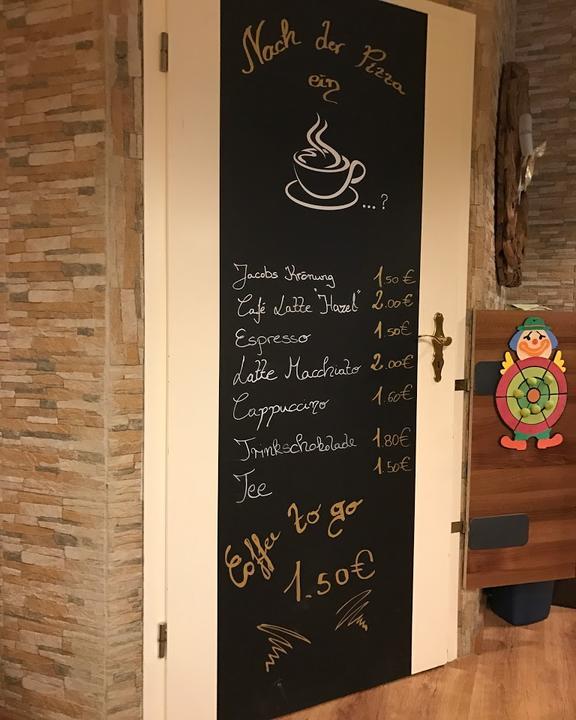 Nach der Pizza
ein
...?
Jacobs Krönung 1.50€
Café Latte "Hazel" 2.00€
Espresso 1.50€
Latte Macchiato 2.00€
Cappuccino 1.60€
Trinkschokolade 1.80€
Tee 1.50€
Coffee to go
1.50€